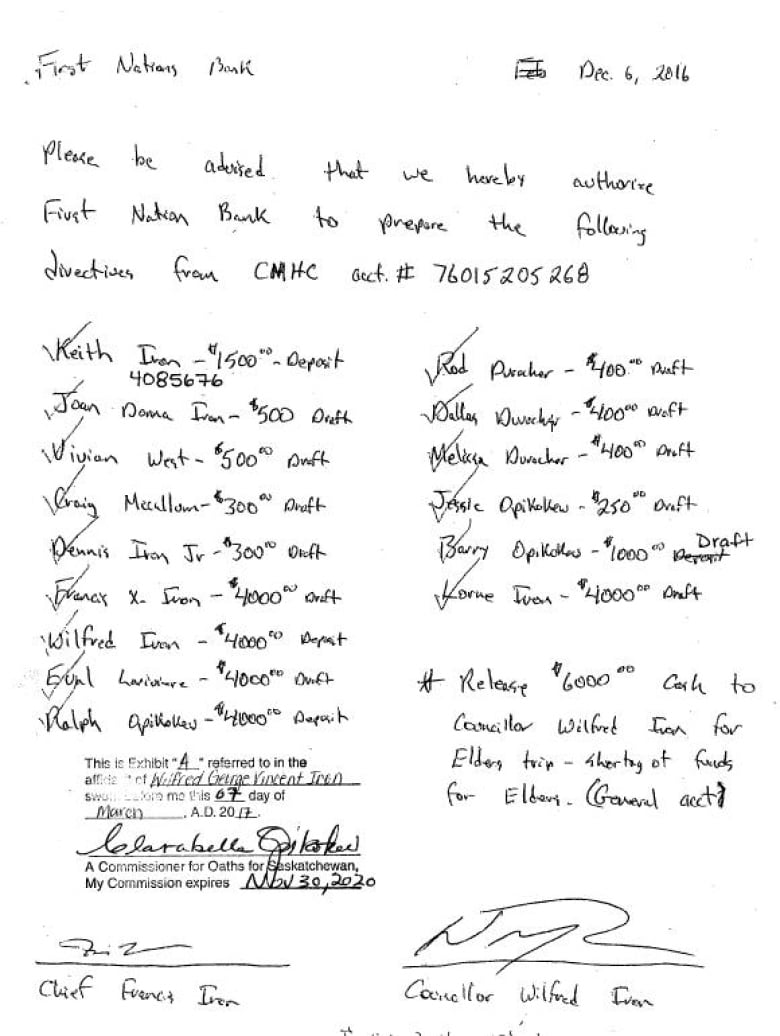 First Nations Bank
Dec. 6, 2016
Please be advised that we hereby authorize
First Nation Bank to prepare the following
directives from CMHC acct. # 76015205268
Keith Iron - $1500.00 - Deposit
4085676
Joan Donna Iron - $500 Draft
Vivian West - $500.00 Draft
Craig Mccallum - $300.00 Draft
Dennis Iron Jr - $300.00 Draft
Francis X. Iron - $4000.00 Draft
Wilfred Iron - $4000.00 Deposit
Lariviere - $4000.00 Draft
Ralph Opikokew - $4000.00 Deposit
Rod Durocher - $400.00 Draft
Dallas Durocher - $400.00 Draft
Melissa Durocher - $400.00 Draft
Jessie Opikokew - $250.00 Draft
Barry Opikokew - $1000.00 Draft
Lorne Iron - $4000.00 Draft
# Release $6000.00 Cash to
Councillor Wilfred Iron for
Elders trip - shortag of funds
for Elders. (General acct)
This is Exhibit "A" referred to in the
of Wilfred George Vincent Iron
me this 07 day of
March, A.D. 2017.
Clarabella Opikokew
A Commissioner for Oaths for Saskatchewan,
My Commission expires Nov 30, 2020
Chief Francis Iron
Councillor Wilfred Iron